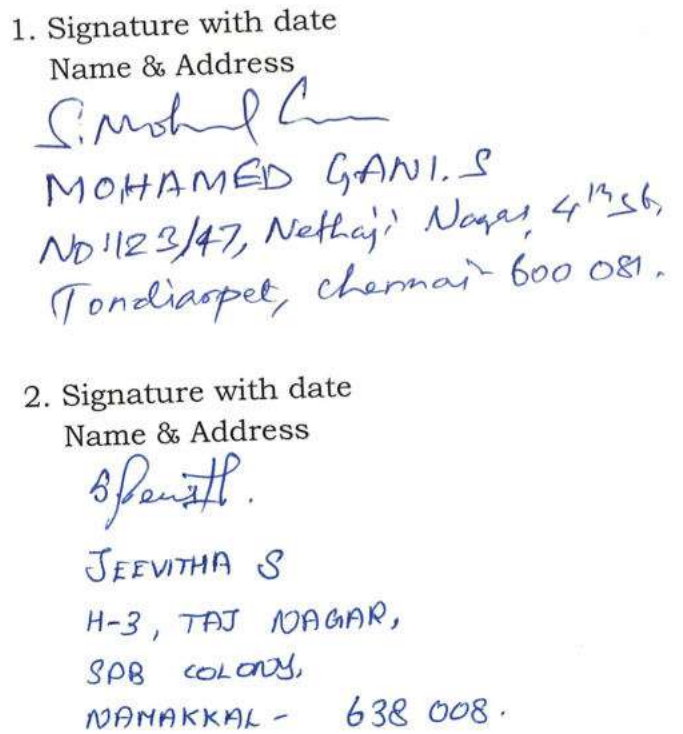 1. Signature with date
Name & Address
S. Moh
MOHAMED GANI. S
NO: 123/47, Nethaji Nagar, 4th St,
Tondiarpet, chennai - 600 081.
2. Signature with date
Name & Address
JEEVITHA S
H-3, TAJ NAGAR,
SPB COLONY,
NAMAKKAL - 638 008.